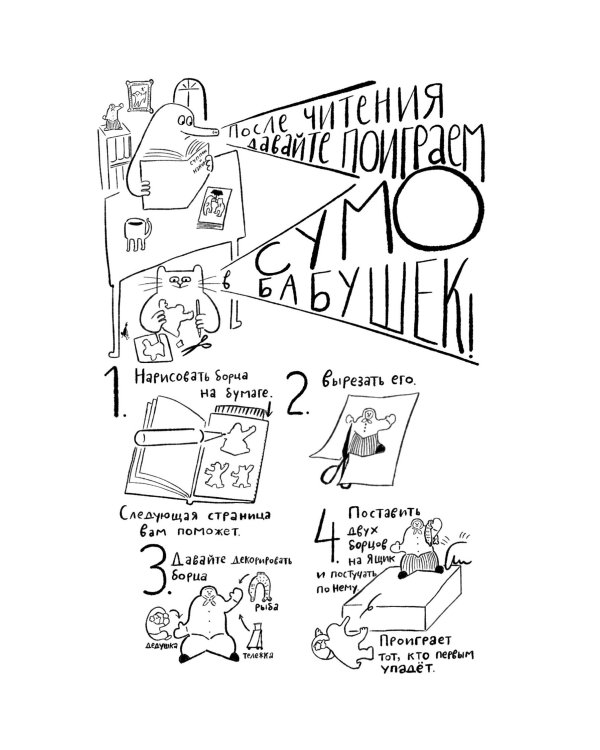 После читения
давайте поиграем
в
сумо
бабушек!
1. Нарисовать борца
на бумаге.
Следующая страница
вам поможет.
2. Вырезать его.
3. Давайте декорировать
борца
рыба
дедушка
тележка
4. Поставить
двух
борцов
на ящик
и постучать
по нему.
Проиграет
тот, кто первым
упадёт.